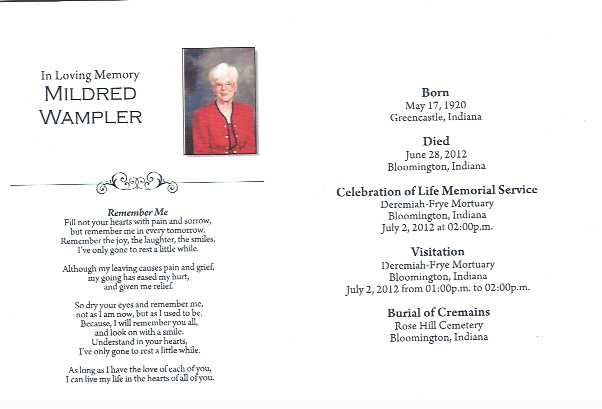 In Loving Memory
MILDRED
WAMPLER
Remember Me
Fill not your hearts with pain and sorrow,
but remember me in every tomorrow.
Remember the joy, the laughter, the smiles,
I've only gone to rest a little while.
Although my leaving causes pain and grief,
my going has eased my hurt,
and given me relief.
So dry your eyes and remember me,
not as I am now, but as I used to be.
Because, I will remember you all,
and look on with a smile.
Understand in your hearts,
I've only gone to rest a little while.
As long as I have the love of each of you,
I can live my life in the hearts of all of you.
Born
May 17, 1920
Greencastle, Indiana
Died
June 28, 2012
Bloomington, Indiana
Celebration of Life Memorial Service
Deremiah-Frye Mortuary
Bloomington, Indiana
July 2, 2012 at 02:00p.m.
Visitation
Deremiah-Frye Mortuary
Bloomington, Indiana
July 2, 2012 from 01:00p.m. to 02:00p.m.
Burial of Cremains
Rose Hill Cemetery
Bloomington, Indiana